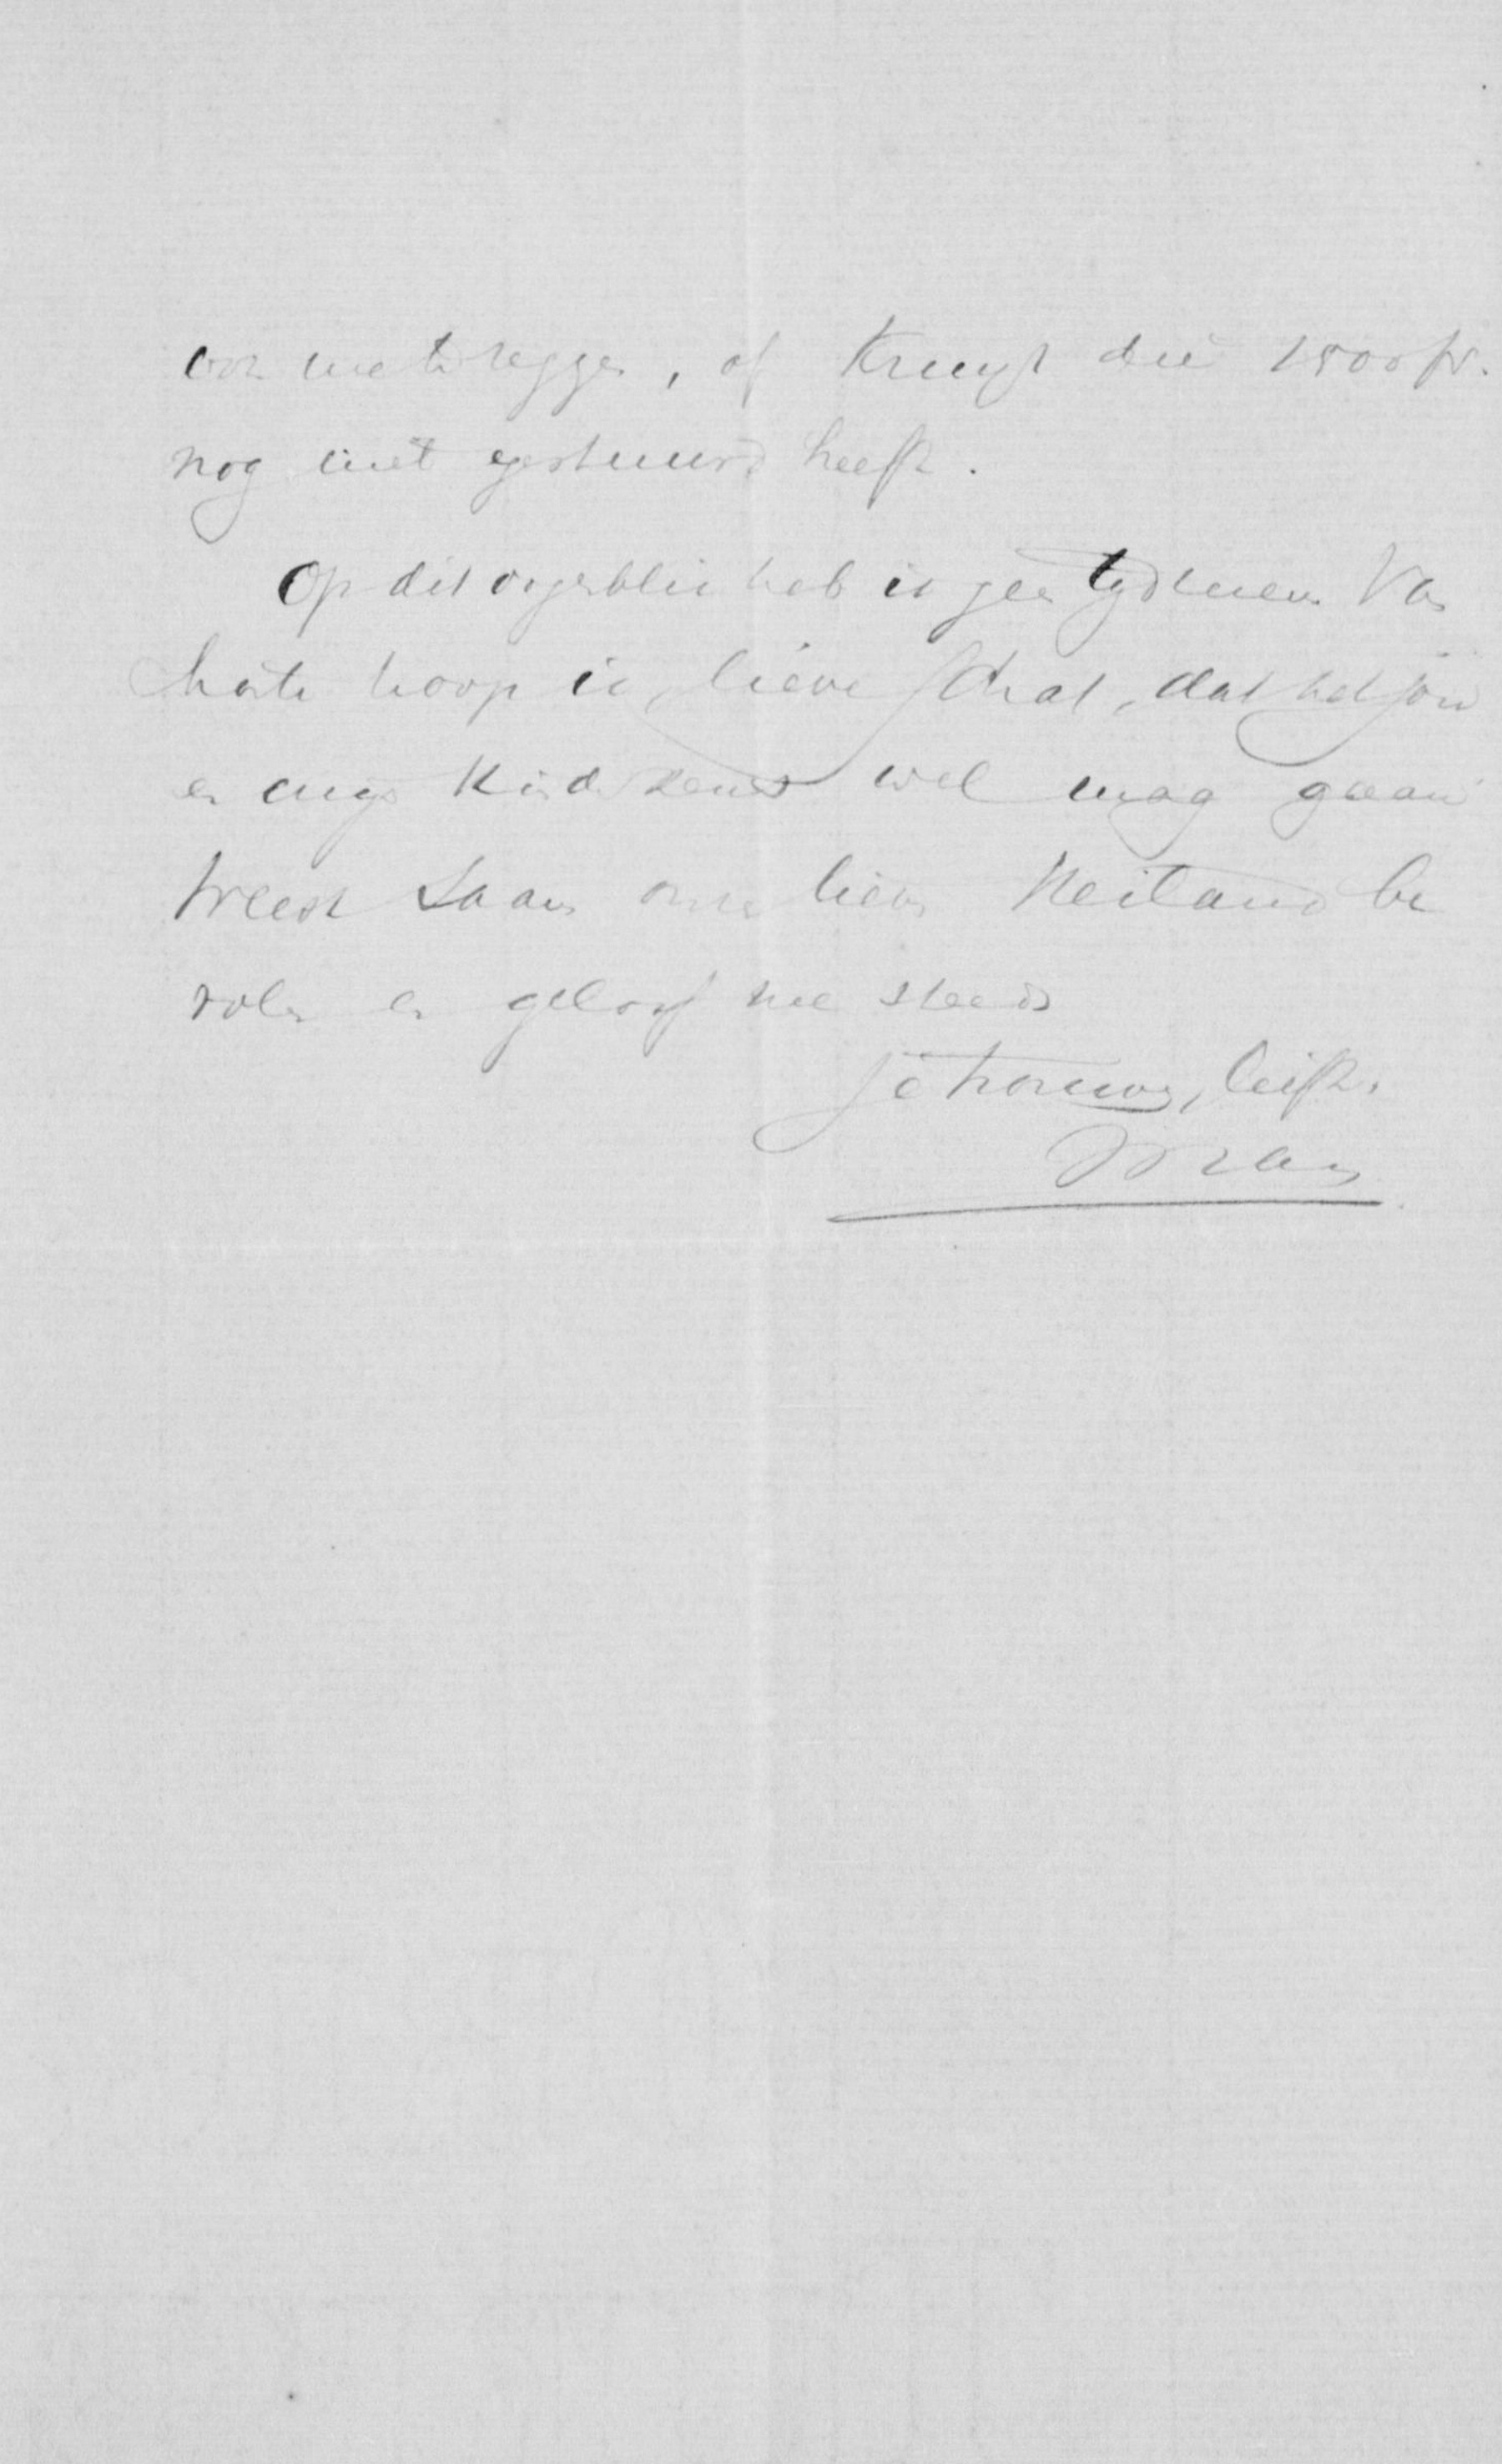 ook me te zeggen, of Kruijt die 1500 fr.
nog niet gestuurd heeft.
Op dit oogenblik heb ik geen tyd meer. Van
harte hoop ik, lieve schat, dat het jou
en mijn kinderkens wel mag gaan
Weest Gaan onze lieven Heiland be
volen en geloof me steeds
je trouwe, liefh.
Man